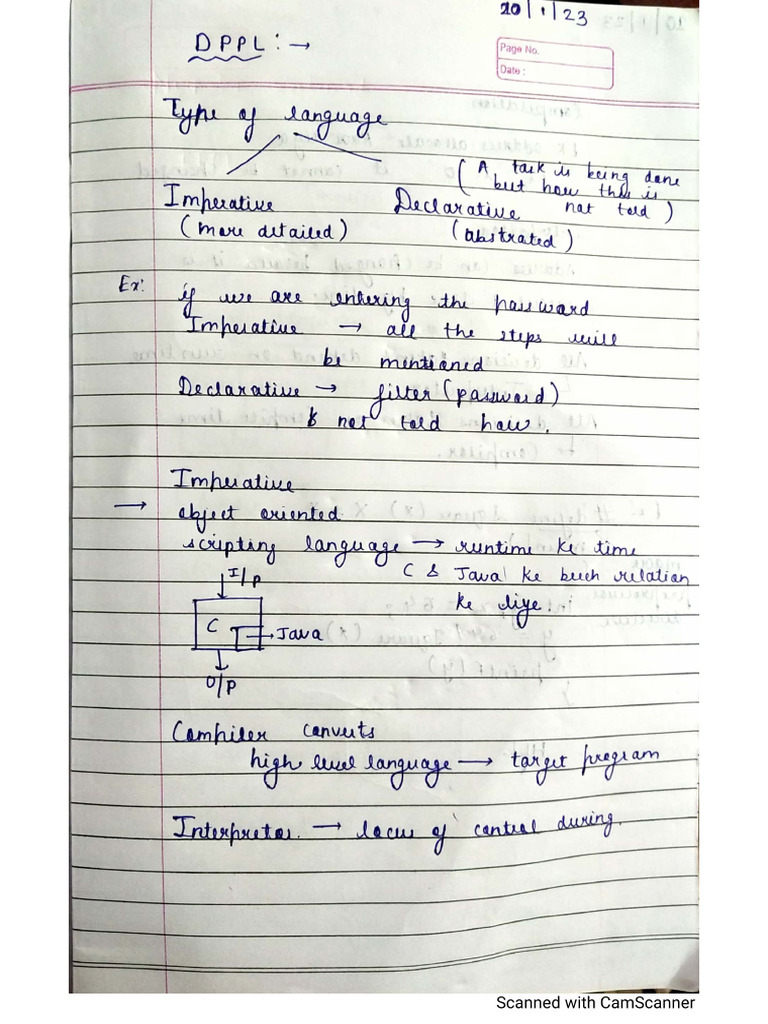 20/1/23
DPPL : →
Page No.
Date :
Type of language
( A task is being done
but how this is
Imperative Declarative not told )
( more detailed ) ( abstrated )
Ex: if we are entering the password
Imperative → all the steps will
be mentioned
Declarative → filter (password)
& not told how.
Imperative
→ object oriented
scripting language → runtime ke time
I/P C & Java ke beech relation
ke liye.
C → Java
O/P
Compiler converts
high level language → target program
Interpretor. → locus of control during.
Scanned with CamScanner